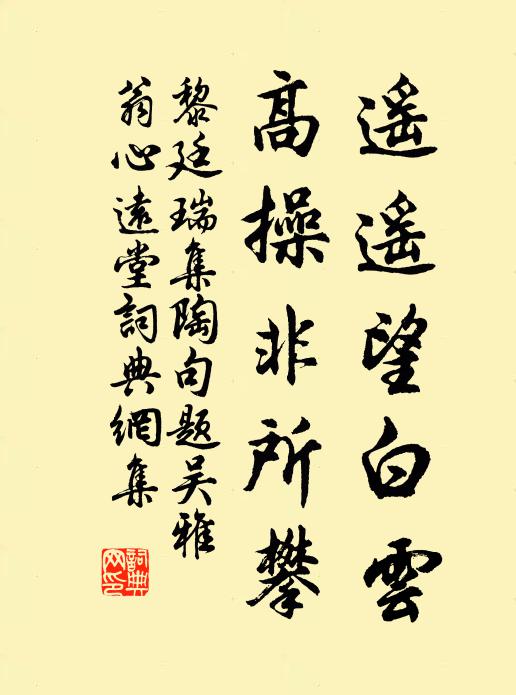 遥遥望白雲
高操非所攀
黎廷瑞集陶句題吴雅
翁心遠堂詞典網集
詞典网印